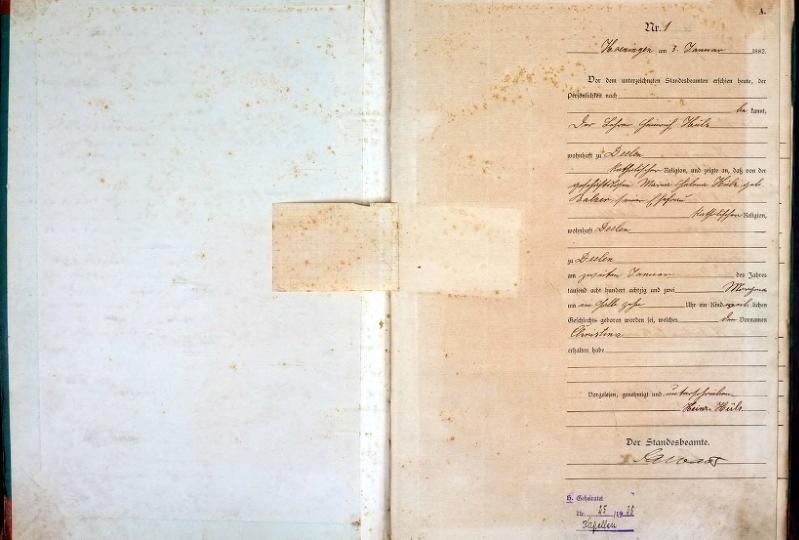 A.
Nr. 1
am 3. Januar 1882.
Vor dem unterzeichneten Standesbeamten erschien heute, der
Persönlichkeit nach
be kannt,
Der Heinrich Hüls
wohnhaft zu Deelen
katholischer Religion, und zeigte an, daß von der
Maria Hüls geb.
seiner Ehefrau
katholischer Religion,
wohnhaft Deelen
zu Deelen
am zweiten Januar des Jahres
tausend acht hundert achtzig und zwei Morgens
um halb zehn Uhr ein Kind weib lichen
Geschlechts geboren worden sei, welches den Vornamen
Christina
erhalten habe
Vorgelesen, genehmigt und unterschrieben
Heinr. Hüls
Der Standesbeamte.
H. Geheiratet
Nr.